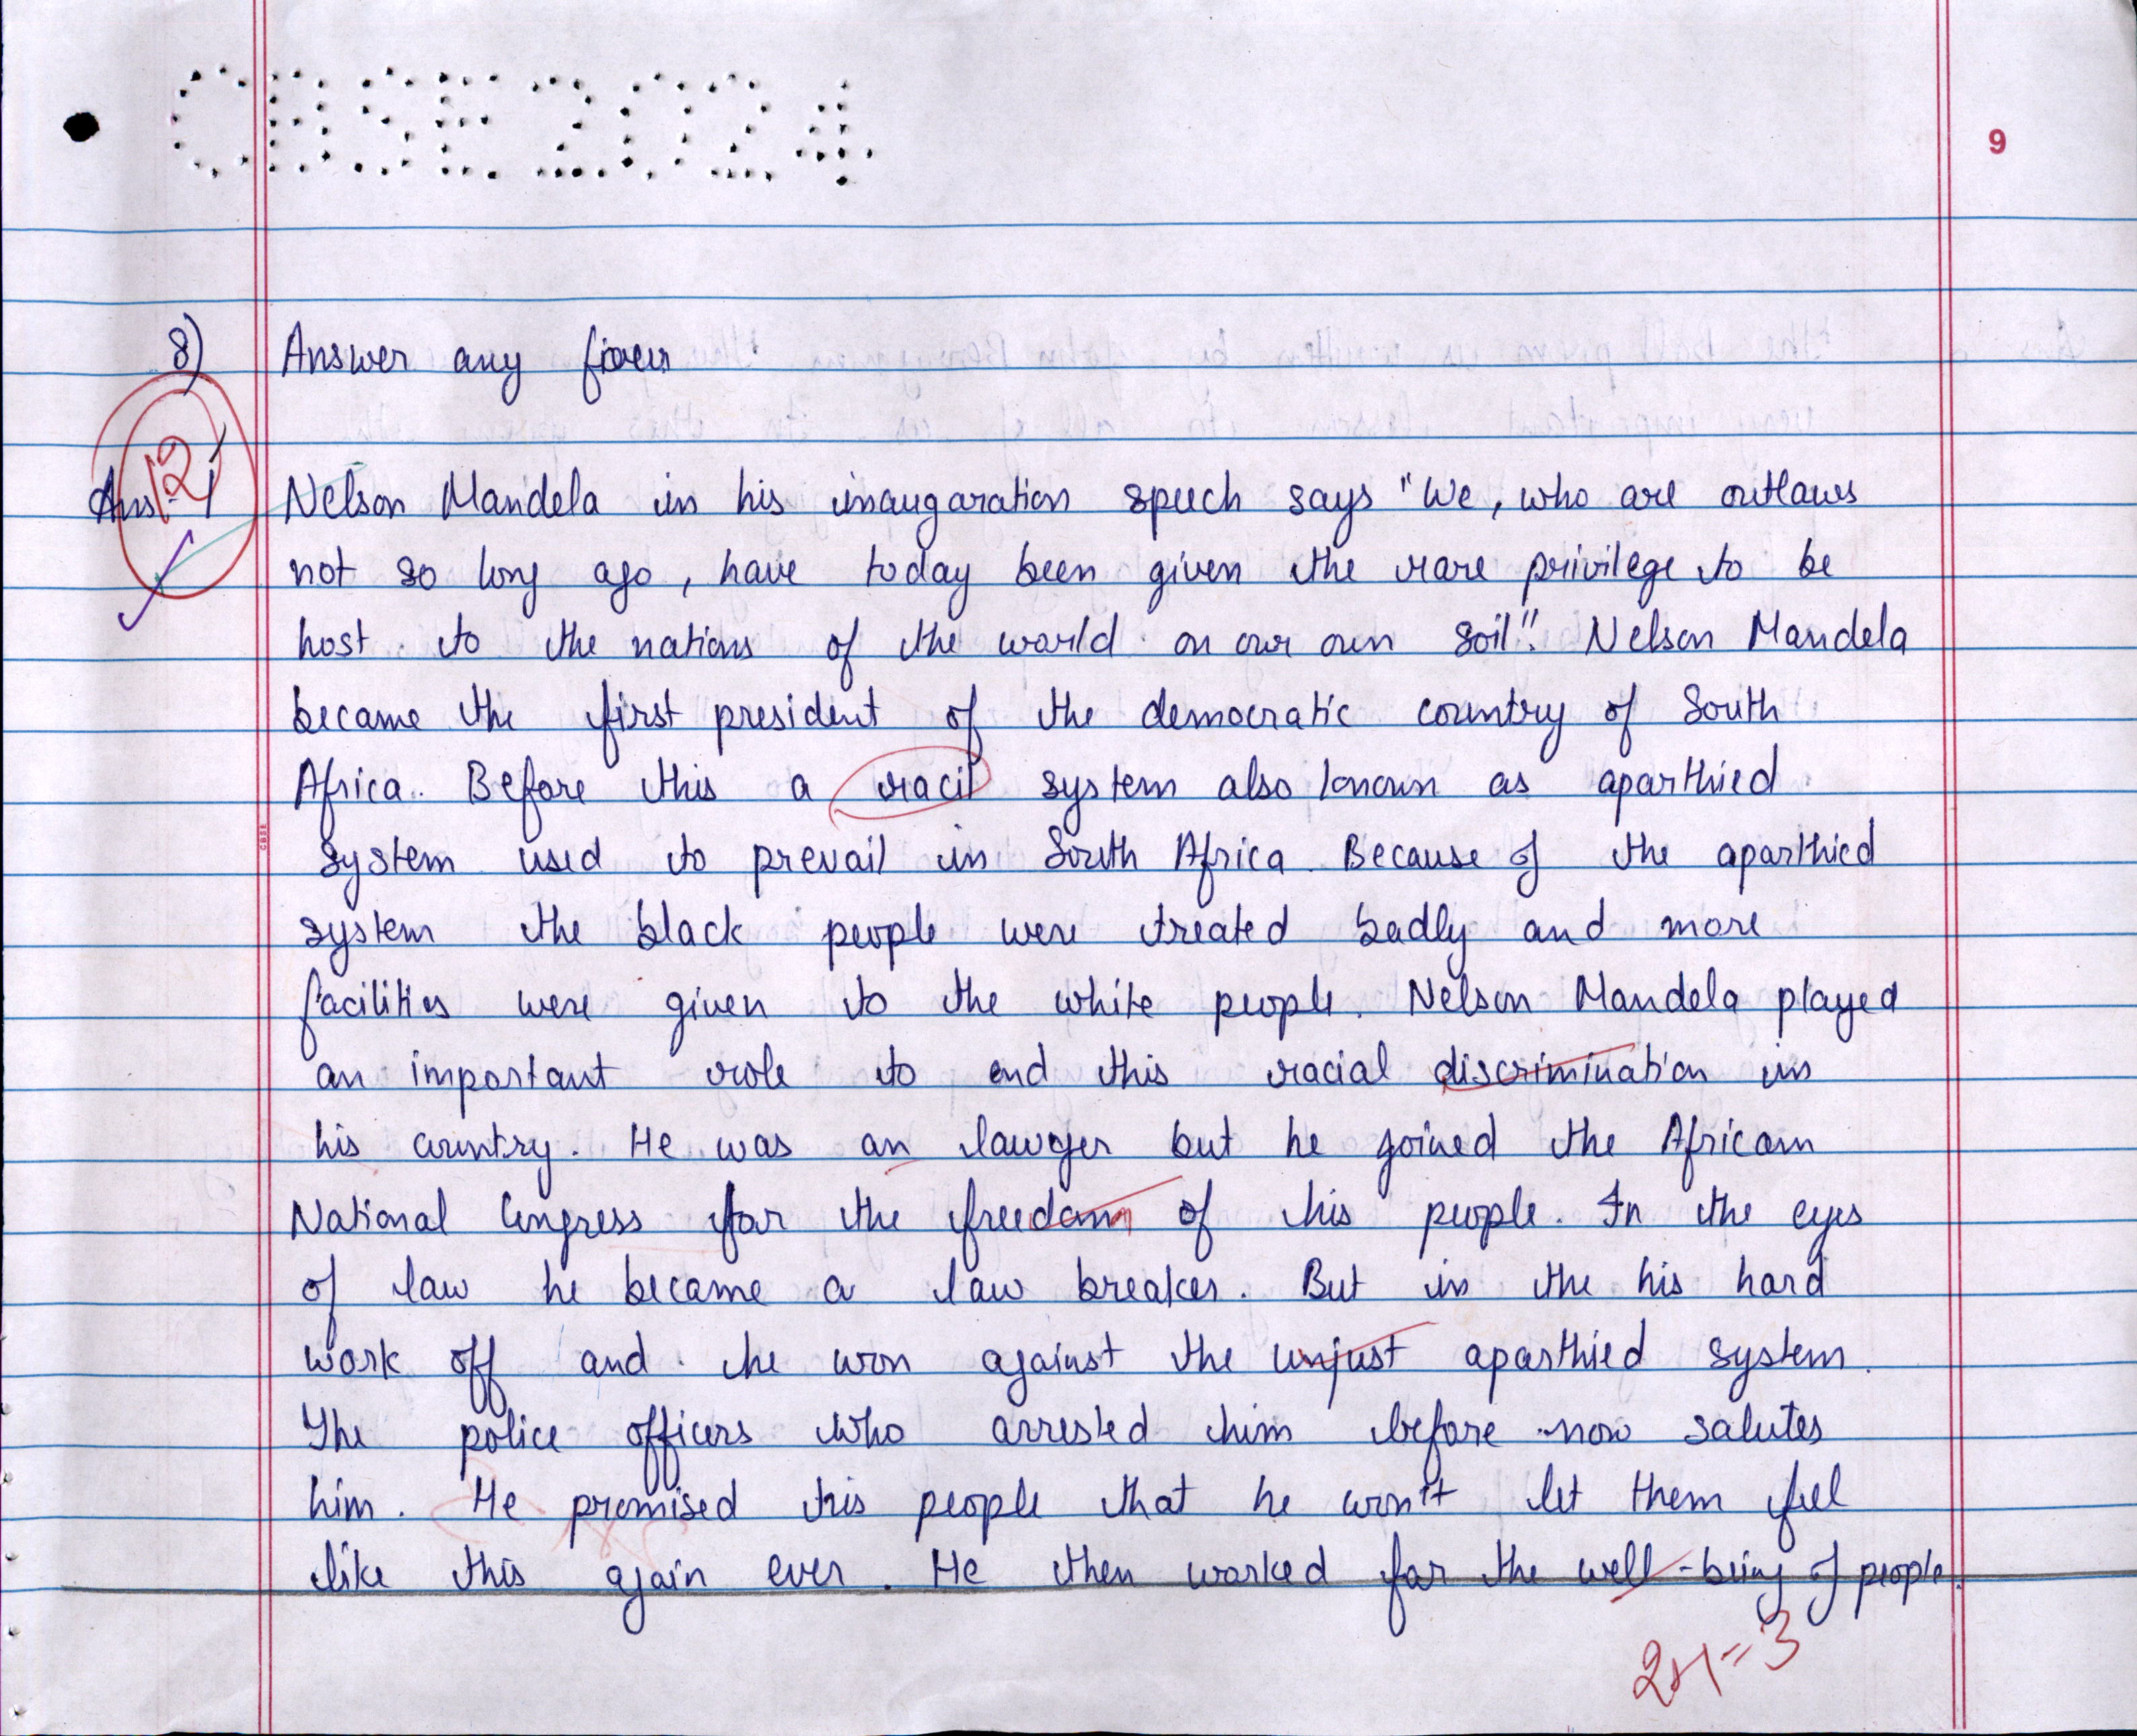 CBSE2024
9
8) Answer any four
12
Ans-1 Nelson Mandela in his inaugaration speech says "We, who are outlaws
not so long ago, have today been given the rare privilege to be
host to the nations of the world on our own soil". Nelson Mandela
became the first president of the democratic country of South
Africa. Before this a racil system also known as aparthied
system used to prevail in South Africa. Because of the aparthied
system the black people were treated badly and more
facilities were given to the white people. Nelson Mandela played
an important role to end this racial discrimination in
his country. He was an lawyer but he joined the African
National Congress for the freedom of his people. In the eyes
of law he became a law breaker. But in the his hard
work off and he won against the unjust aparthied system.
The police officers who arrested him before now salutes
him. He promised his people that he won't let them feel
like this again ever. He then worked for the well-being of people.
2+1=3